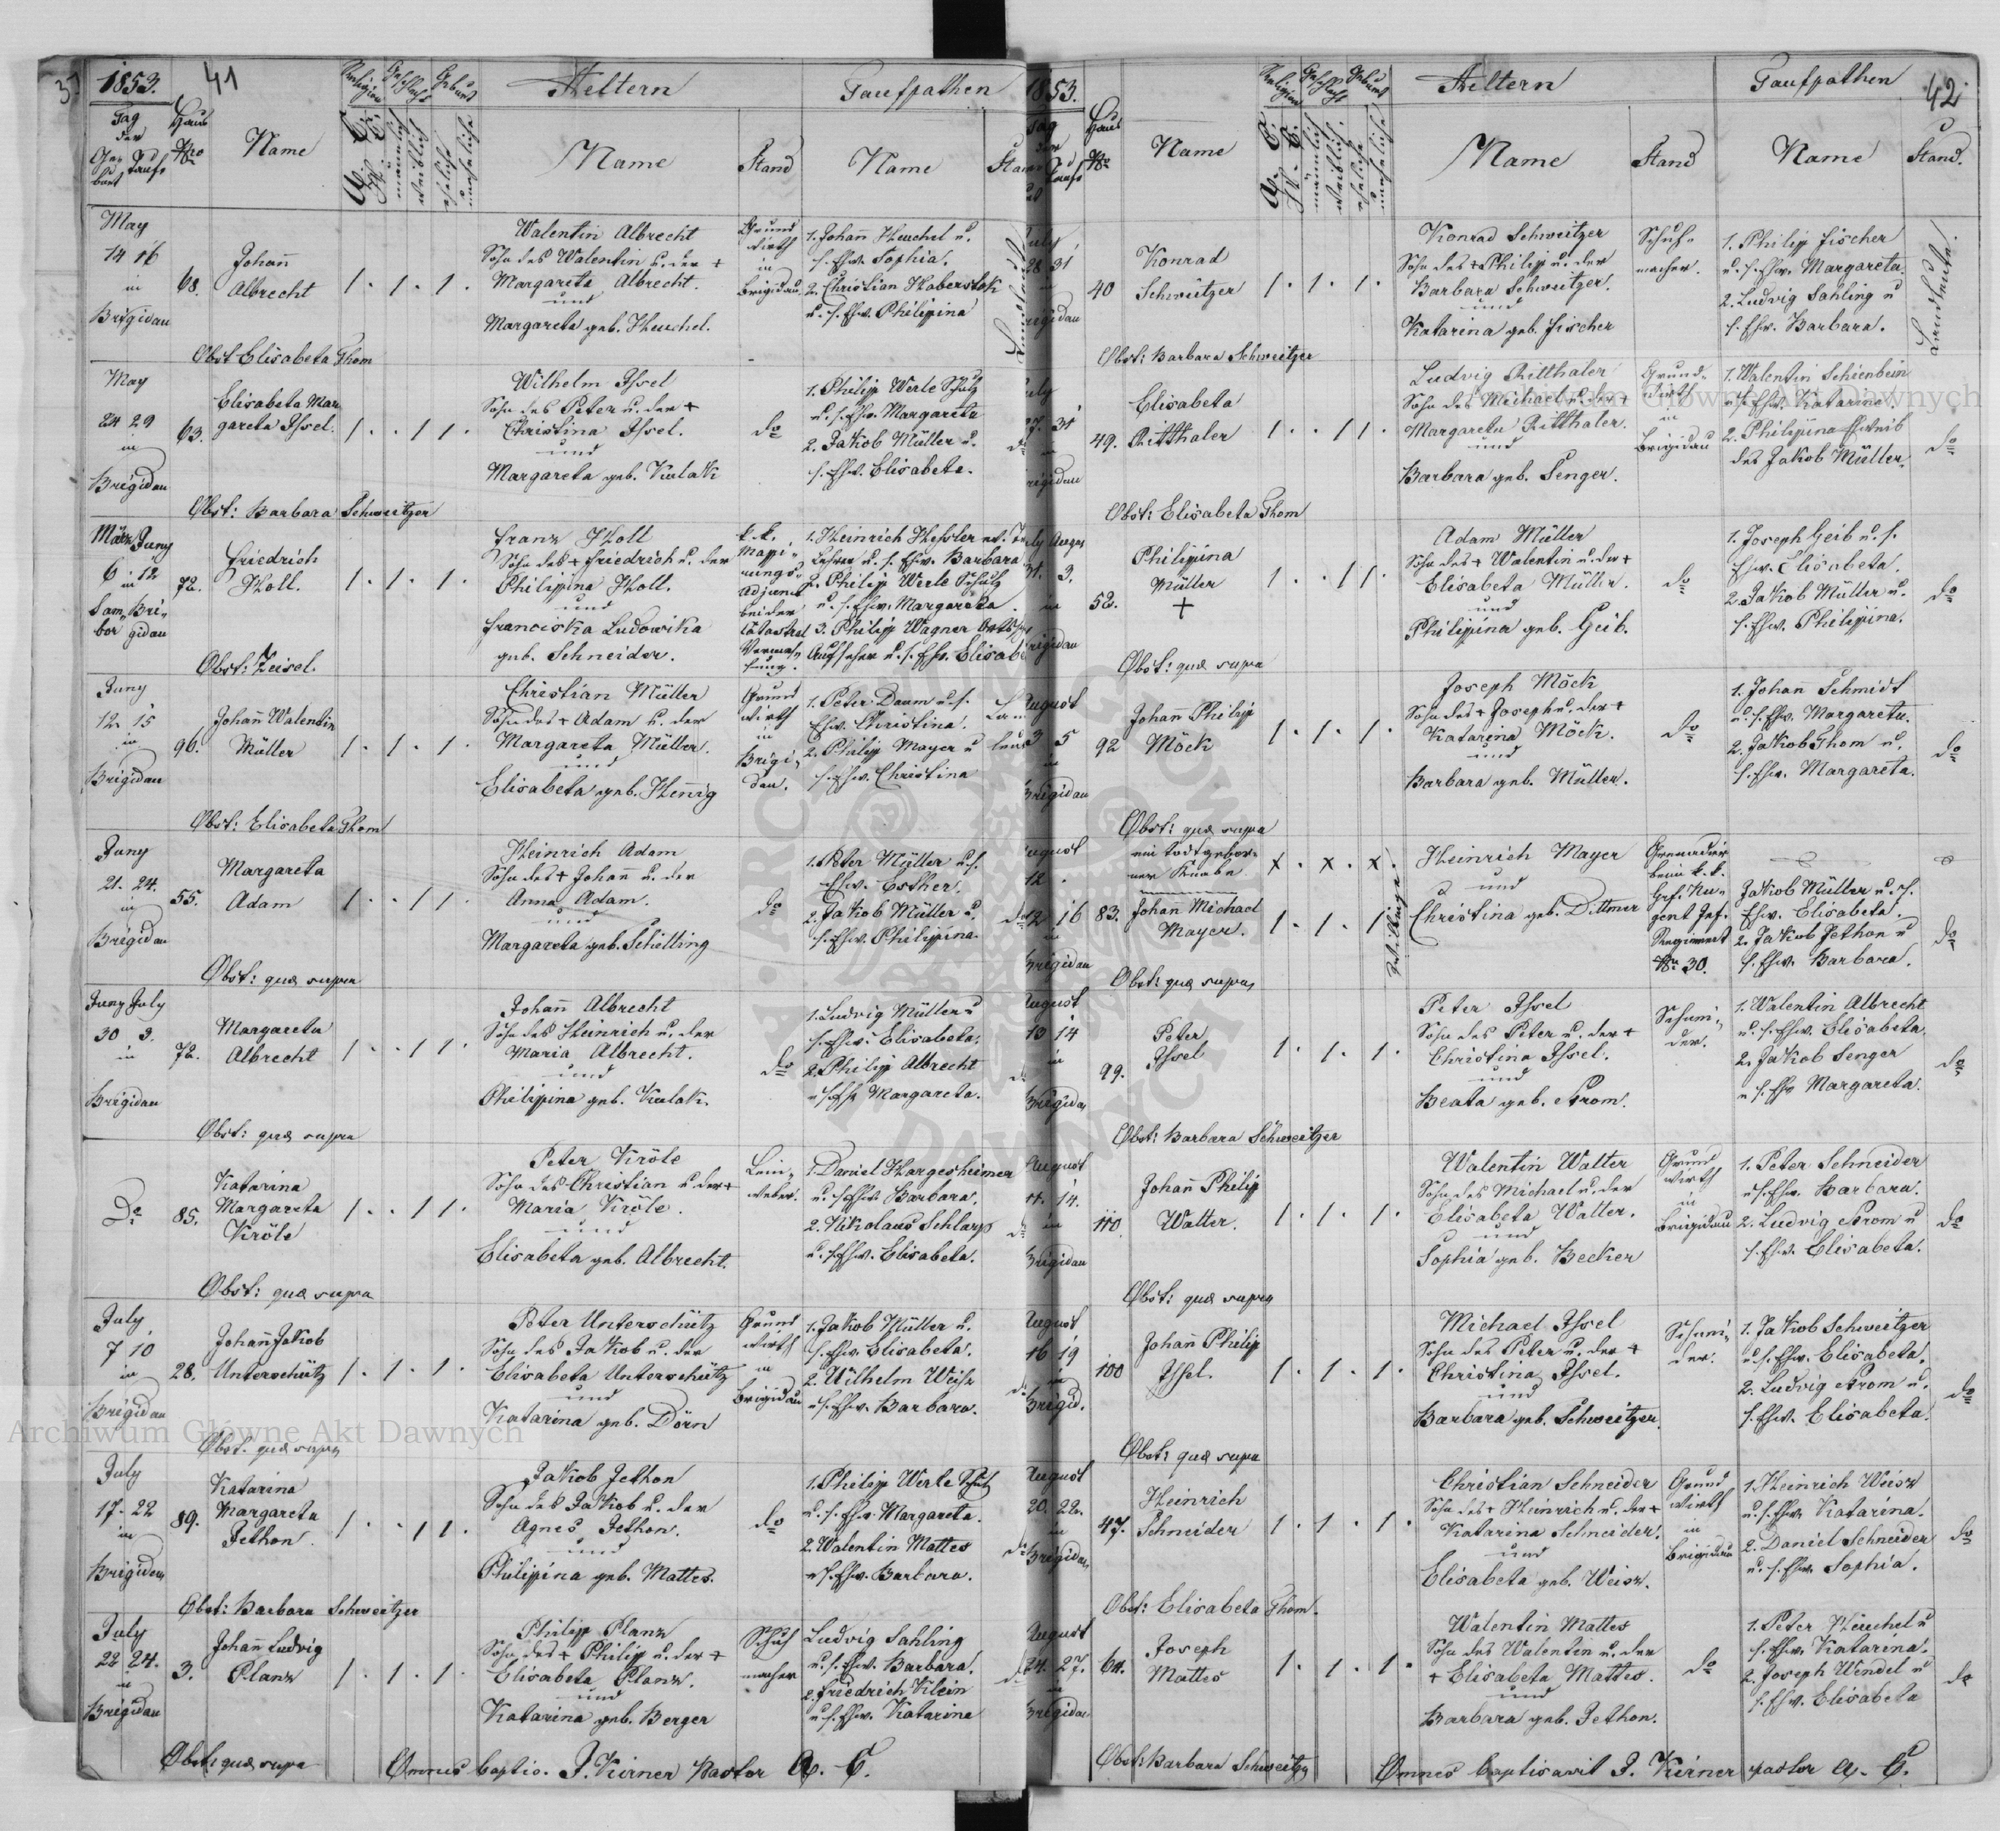 1853. 41
Aeltern Taufpathen
Tag der Geburt Taufe
Haus Nro
Name
Religion Geschlecht Geburt
A. C. H. C. männlich weiblich eheliche uneheliche
Name Stand Name
May
14 16
in
Brigidau
68.
Johann
Albrecht
Walentin Albrecht
Sohn des Walentin u. der +
Margareta Albrecht.
und
Margareta geb. Heuchel.
Grund
wirth
in
Brigidau.
1. Johann Heuchel u.
s. Ehw. Sophia.
2. Christian Haberstok
u. s. Ehw. Philippina
Landleute
Obst Elisabeta Thom
May
24 29
in
Brigidau
63.
Elisabeta Mar
gareta Issel.
Wilhelm Issel
Sohn des Peter u. der +
Christina Issel.
und
Margareta geb. Kulak
do
1. Philipp Werle Schulz
u. s. Ehw. Margareta
2. Jakob Müller u.
s. Ehw. Elisabeta.
Obst: Barbara Schweitzer
März Juny
6 12
in
Sam Bri
bor gidau
72.
Friedrich
Holl.
Franz Holl
Sohn des + Friedrich u. der
Philippina Holl.
und
Franciska Ludowika
geb. Schneider.
k. k.
Mappi
rungs
Adjunct
bei der
Catastral
Vermes
sung.
1. Heinrich Hessler
Lehrer u. s. Ehw. Barbara
2. Philipp Werle Schulz
u. s. Ehw. Margareta
3. Philipp Wagner
Aufseher u. s. Ehw.
Obst: Zeisel.
Juny
12. 15
in
Brigidau
96.
Johann Walentin
Müller
Christian Müller
Sohn des + Adam u. der
Margareta Müller.
und
Elisabeta geb. Hennig
Grund
wirth
in
Brigi
dau.
1. Peter Daum u. s.
Ehw. Christina.
2. Philipp Mayer u
s. Ehw. Christina
Obst: Elisabeta Thom
Juny
21. 24.
in
Brigidau
55.
Margareta
Adam
Heinrich Adam
Sohn des + Johann u. der
Anna Adam.
und
Margareta geb. Schilling
do
1. Peter Müller u. s.
Ehw. Esther.
2. Jakob Müller u.
s. Ehw. Philippina.
Obst: quæ supra
Juny July
30 3.
in
Brigidau
72.
Margareta
Albrecht
Johann Albrecht
Sohn des Heinrich u. der
Maria Albrecht.
und
Philippina geb. Kulak.
do
1. Ludwig Müller u
s. Ehw. Elisabeta.
2. Philipp Albrecht
u s. Ehw Margareta.
Obst: quæ supra
Do
85.
Katarina
Margareta
Kröle
Peter Kröle
Sohn des Christian u der +
Maria Kröle.
und
Elisabeta geb. Albrecht.
Lein
weber.
1. Daniel Hargesheimer
u. s. Ehw. Barbara.
2. Nikolaus Schlarp
u. s. Ehw. Elisabeta.
Obst: quæ supra
July
7 10
in
Brigidau
28.
Johann Jakob
Unterschütz
Peter Unterschütz
Sohn des Jakob u. der
Elisabeta Unterschütz
und
Katarina geb. Dörn
Grund
wirth
in
Brigidau
1. Jakob Müller u.
s. Ehw. Elisabeta.
2. Wilhelm Weisz
u s. Ehw. Barbara.
Obst. quæ supra
July
17. 22
in
Brigidau
89.
Katarina
Margareta
Jethon
Jakob Jethon
Sohn des Jakob u. der
Agnes Jethon.
und
Philippina geb. Mattes.
do
1. Philipp Werle Schulz
u. s. Ehw Margareta.
2. Walentin Mattes
u s. Ehw. Barbara.
Obst: Barbara Schweitzer
July
22 24.
in
Brigidau
3.
Johann Ludwig
Planz
Philipp Planz
Sohn des + Philipp u. der +
Elisabeta Planz.
und
Katarina geb. Berger
Schuh
macher
Ludwig Sahling
u. s. Ehw. Barbara.
2. Friedrich Klein
u. s. Ehw. Katarina
Obst: quæ supra Omnes baptis. J. Kirner Pastor A. C.
1853. 42.
Aeltern Taufpathen
Haus Nr
Name
Religion Geschlecht Geburt
A. C. H. C. männlich weiblich. eheliche uneheliche
Name Stand Name Stand.
July
28 31
40
Konrad
Schweitzer
Konrad Schweitzer
Sohn des + Philipp u. der
Barbara Schweitzer.
und
Katarina geb. Fischer
Schuh
macher.
1. Philipp Fischer
u. s. Ehw. Margareta.
2. Ludwig Sahling u
s. Ehw. Barbara.
Landleute
Obst: Barbara Schweitzer
27. 31
49.
Elisabeta
Ritthaler
Ludwig Ritthaler
Sohn des Michael u. der +
Margareta Ritthaler.
und
Barbara geb. Senger.
Grund
wirth
in
Brigidau
1. Walentin Schienbein
u. s. Ehw. Katarina.
2. Philipina Eheweib
des Jakob Müller.
do
Obst: Elisabeta Thom
31. 3.
52.
Philippina
Müller
+
Adam Müller
Sohn des + Walentin u. der +
Elisabeta Müller.
und
Philippina geb. Geib.
do
1. Joseph Geib u. s.
Ehw. Elisabeta.
2. Jakob Müller u.
s. Ehw. Philippina.
do
Obst: quæ supra
August
3 5
in
Brigidau
92
Johann Philipp
Möck
Joseph Möck
Sohn des + Joseph u. der +
Katarina Möck.
und
Barbara geb. Müller.
do
1. Johann Schmidt
u. s. Ehw. Margareta.
2. Jakob Thom u.
s. Ehw. Margareta.
do
Obst: quæ supra
August
12
12 16
in
Brigidau
83.
ein todtgebor
ner Knabe
Johann Michael
Mayer.
Heinrich Mayer
und
Christina geb. Dittmer
Grenadier
beim k. k.
Grf. Nu
gent Inf.
Regiment
Nr. 30.
Jakob Müller u. s.
Ehw. Elisabeta.
2. Jakob Jethon u
s. Ehw. Barbara.
do
Obst: quæ supra
August
13 14
in
Brigidau
99.
Peter
Issel
Peter Issel
Sohn des Peter u. der +
Christina Issel.
und
Beata geb. Prom.
Schmi
der.
1. Walentin Albrecht
u. s. Ehw. Elisabeta.
2. Jakob Senger
u s. Ehw Margareta.
do
Obst: Barbara Schweitzer
August
11. 14.
in
Brigidau
110.
Johann Philipp
Walter.
Walentin Walter
Sohn des Michael u. der
Elisabeta Walter.
und
Sophia geb. Becker
Grund
wirth
in
Brigidau
1. Peter Schneider
u s. Ehw. Barbara.
2. Ludwig Prom u
s. Ehw. Elisabeta.
do
Obst: quæ supra
August
16 19
in
Brigid.
100
Johann Philipp
Issel.
Michael Issel
Sohn des Peter u. der +
Christina Issel.
und
Barbara geb. Schweitzer.
Schmi
der.
1. Jakob Schweitzer
u. s. Ehw. Elisabeta.
2. Ludwig Prom u.
s. Ehw. Elisabeta.
do
Obst: quæ supra
August
20. 22.
in
Brigidau
47.
Heinrich
Schneider
Christian Schneider
Sohn des + Heinrich u. der +
Katarina Schneider.
und
Elisabeta geb. Weisz.
Grund
wirth
in
Brigidau
1. Heinrich Weisz
u. s. Ehw. Katarina.
2. Daniel Schneider
u. s. Ehw. Sophia.
do
Obst: Elisabeta Thom.
August
24. 27.
in
Brigidau
64.
Joseph
Mattes
Walentin Mattes
Sohn des Walentin u. der
+ Elisabeta Mattes.
und
Barbara geb. Jethon.
do
1. Peter Heuchel u
s. Ehw. Katarina.
2. Joseph Wendel u
s. Ehw. Elisabeta
do
Obst: Barbara Schweitzer Omnes baptisavit J. Kirner pastor A. C.
Archiwum Główne Akt Dawnych